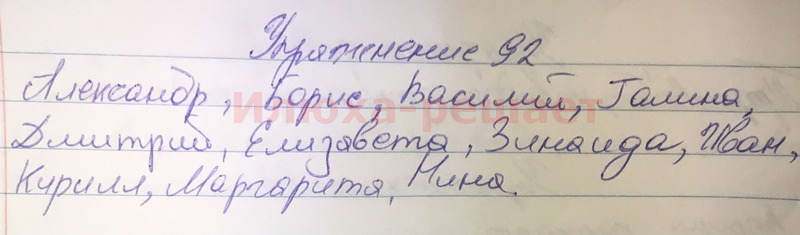 Упражнение 92
Александр, Борис, Василий, Галина,
Илюха-решает
Дмитрий, Елизавета, Зинаида, Иван,
Кирилл, Маргарита, Нина.